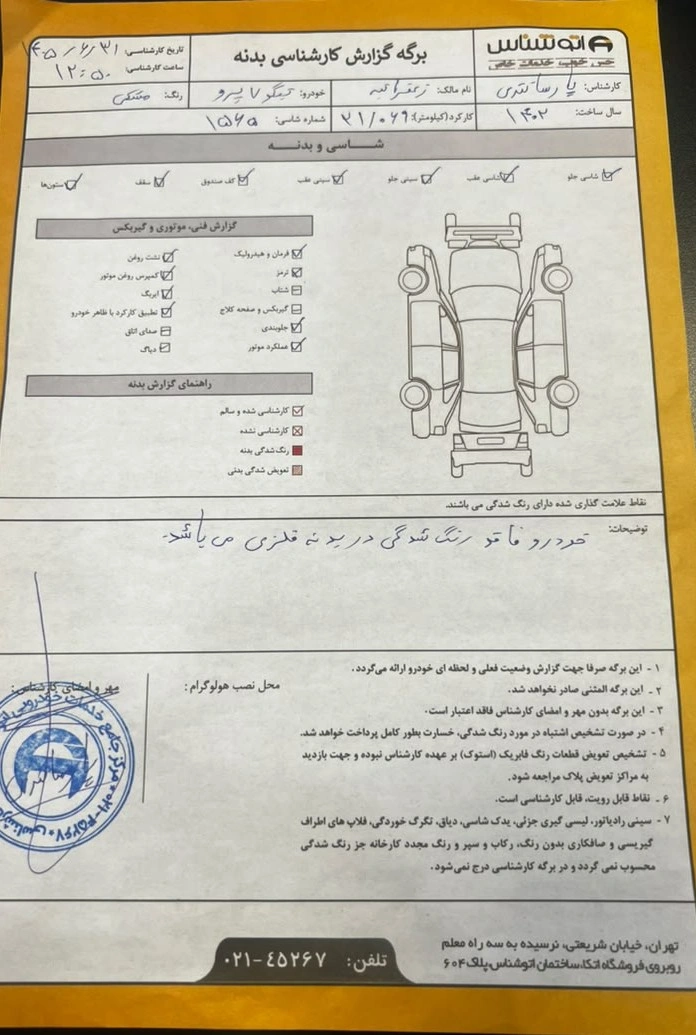 اتوشناس
حس خوب خدمات خاص
برگه گزارش کارشناسی بدنه
تاریخ کارشناسی: ۱۴۰۵/۶/۳۱
ساعت کارشناسی: ۱۲:۵۰
کارشناس: پارسا
نام مالک:
خودرو: تیگو ۷ پرو
رنگ: مشکی
سال ساخت: ۱۴۰۲
کارکرد (کیلومتر): ۳۱/۰۶۹
شماره شاسی: ۱۵۶۵
شـاسی و بدنـه
شاسی جلو شاسی عقب سینی جلو سینی عقب کف صندوق سقف ستون‌ها
گزارش فنی، موتوری و گیربکس
فرمان و هیدرولیک نشت روغن
ترمز کمپرس روغن موتور
شتاب ایربگ
گیربکس و صفحه کلاچ تطبیق کارکرد با ظاهر خودرو
جلوبندی صدای اتاق
عملکرد موتور دیاگ
راهنمای گزارش بدنه
کارشناسی شده و سالم
کارشناسی نشده
رنگ‌شدگی بدنه
تعویض شدگی بدنی
نقاط علامت گذاری شده دارای رنگ شدگی می باشند.
توضیحات: خودرو فاقد رنگ شدگی در بدنه فلزی می باشد.
۱ - این برگه صرفا جهت گزارش وضعیت فعلی و لحظه ای خودرو ارائه می‌گردد.
۲ - این برگه المثنی صادر نخواهد شد.
۳ - این برگه بدون مهر و امضای کارشناس فاقد اعتبار است.
۴ - در صورت تشخیص اشتباه در مورد رنگ شدگی، خسارت بطور کامل پرداخت خواهد شد.
۵ - تشخیص تعویض قطعات رنگ فابریک (استوک) بر عهده کارشناس نبوده و جهت بازدید
به مراکز تعویض پلاک مراجعه شود.
۶ - نقاط قابل رویت، قابل کارشناسی است.
۷ - سینی رادیاتور، لیسی گیری جزئی، یدک شاسی، دیاق، تگرگ خوردگی، فلاپ های اطراف
گیریسی و صافکاری بدون رنگ، رکاب و سپر و رنگ مجدد کارخانه جز رنگ شدگی
محسوب نمی گردد و در برگه کارشناسی درج نمی‌شود.
محل نصب هولوگرام:
مهر و امضای کارشناس:
مرکز جامع خدمات خودرویی
۰۲۱-۴۵۲۶۷
تهران، خیابان شریعتی، نرسیده به سه راه معلم
روبروی فروشگاه اتکا، ساختمان اتوشناس پلاک ۶۰۴
تلفن: ۰۲۱-۴۵۲۶۷